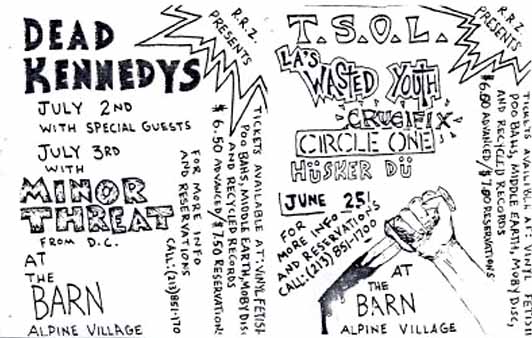 DEAD
KENNEDYS
JULY 2ND
WITH SPECIAL GUESTS
JULY 3RD
WITH
MINOR
THREAT
FROM D.C.
AT
THE
BARN
ALPINE VILLAGE
R.R.Z.
PRESENTS
TICKETS AVAILABLE AT: VINYL FETISH
POO BAHS, MIDDLE EARTH, MOBY DISC
AND RECYCLED RECORDS
$6.50 ADVANCED / $7.50 RESERVATIONS
FOR MORE INFO
AND RESERVATIONS
CALL: (213) 851-170
T.S.O.L.
LA'S
WASTED YOUTH
CRUCIFIX
CIRCLE ONE
HÜSKER DÜ
JUNE 25!
FOR
MORE INFO
AND RESERVATIONS
CALL: (213) 851-1700
AT
THE
BARN
ALPINE VILLAGE
R.R.Z.
PRESENTS
TICKETS AVAILABLE AT: VINYL FETISH
POO BAHS, MIDDLE EARTH, MOBY DISC,
AND RECYCLED RECORDS